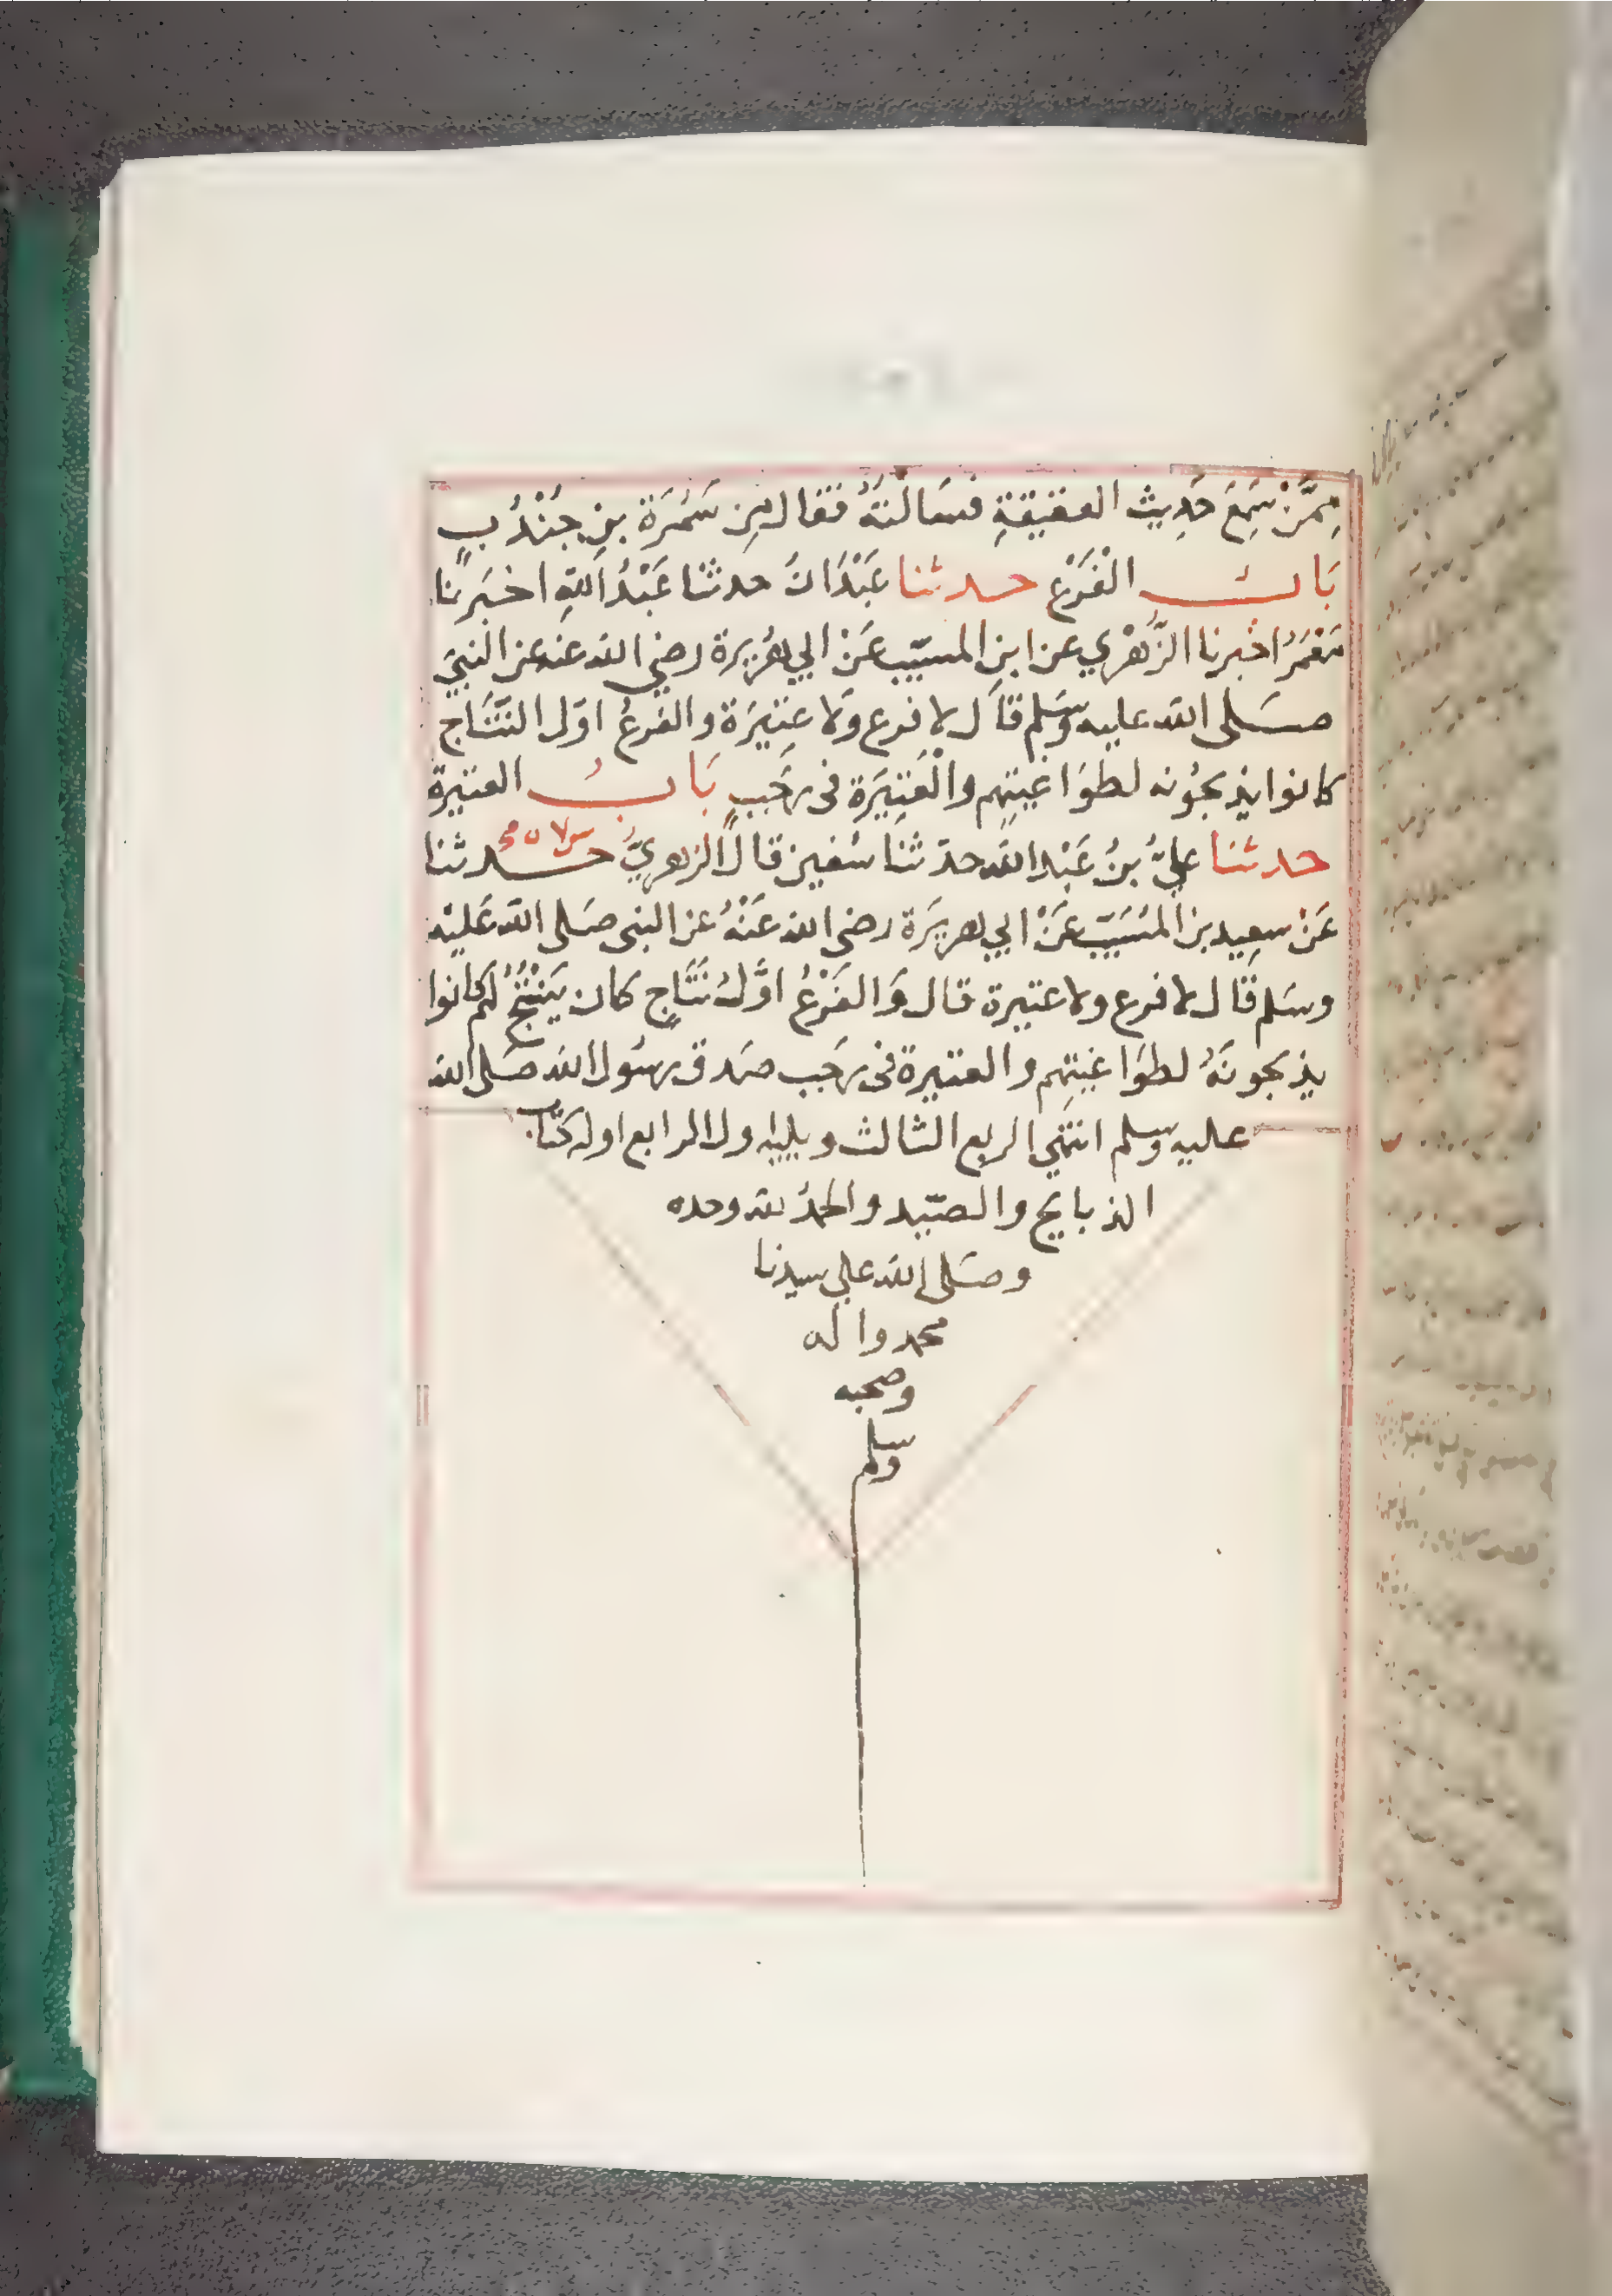 مِمَّنْ سَمِعَ حَدِيث العقيقةِ فسَالتهُ فقال مِن سَمُرَة بنِ جُنْدُبٍ
بَابُ الفَرَعِ حدثنا عَبْدَانُ حدثنا عَبْدُ اللهِ اخبَرنا
مَعْمَرُ اخبرنا الزُّهْرِي عن ابن المسيّب عَنْ ابي هُرَيرة رضي الله عنه عن النبيِّ
صَلى الله عليه وسَلم قال لا فرع وَلا عَتِيرَة والفرعُ اوّل النَّتَاج
كانوا يذبحُونه لطوَاغيتهم والْعَتِيَرَة فى رَجَبٍ بَابُ العتيرة
حدثنا عليُّ بنُ عَبْد الله حدثنا سُفين قال الزهريُّ حدثنا
عَنْ سعِيد بن المُسَيّب عَنْ ابي هريرَة رضى الله عَنْهُ عن النبى صَلى الله عَليْه
وسَلم قال لا فرع ولا عتيرة قال وَالفَرَعُ اوَّلُ نَتَاجٍ كان يَنْتَجُ لهُم كانوا
يذبحونَهُ لطوَاغيتهِم والعتيرة فى رجَب صَدق رسُول الله صَلى الله
عليه وسلم انتهي الربع الثالث ويليه اول الرابع اوله كتاب
الذبايح والصّيد والحمدُ لله وحده
وصَلى الله علي سيدنا
محمد واله
وصحبه
وسلم